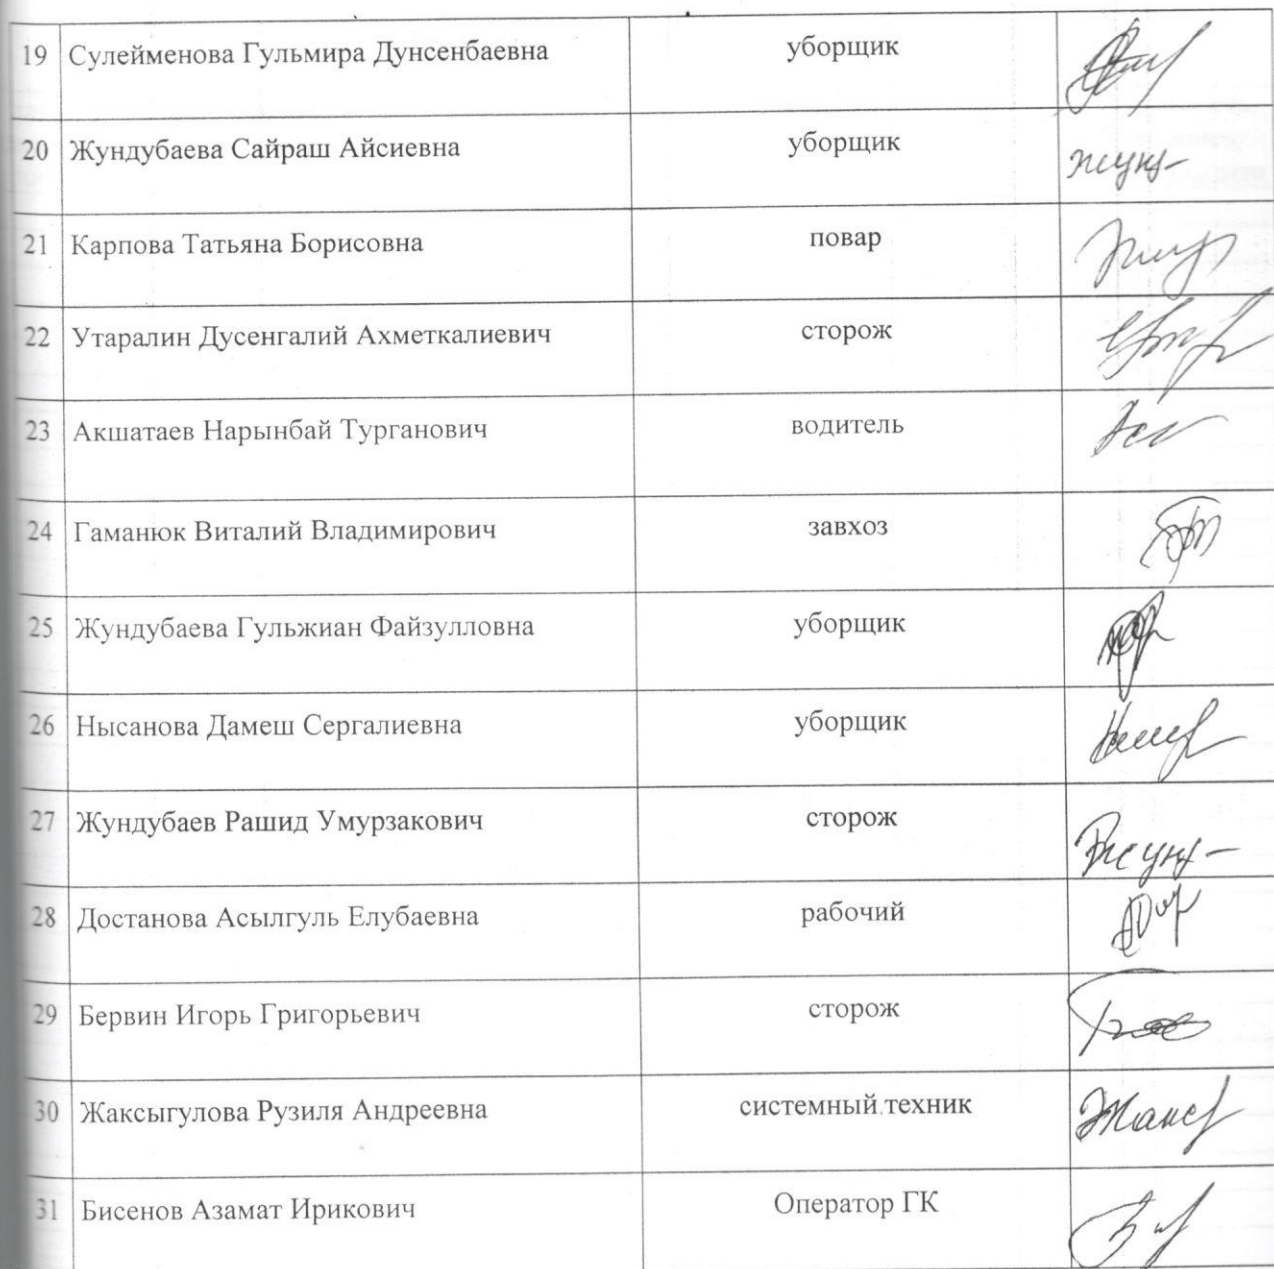 19 Сулейменова Гульмира Дунсенбаевна уборщик
20 Жундубаева Сайраш Айсиевна уборщик
21 Карпова Татьяна Борисовна повар
22 Утаралин Дусенгалий Ахметкалиевич сторож
23 Акшатаев Нарынбай Турганович водитель
24 Гаманюк Виталий Владимирович завхоз
25 Жундубаева Гульжиан Файзулловна уборщик
26 Нысанова Дамеш Сергалиевна уборщик
27 Жундубаев Рашид Умурзакович сторож
28 Достанова Асылгуль Елубаевна рабочий
29 Бервин Игорь Григорьевич сторож
30 Жаксыгулова Рузиля Андреевна системный техник
31 Бисенов Азамат Ирикович Оператор ГК